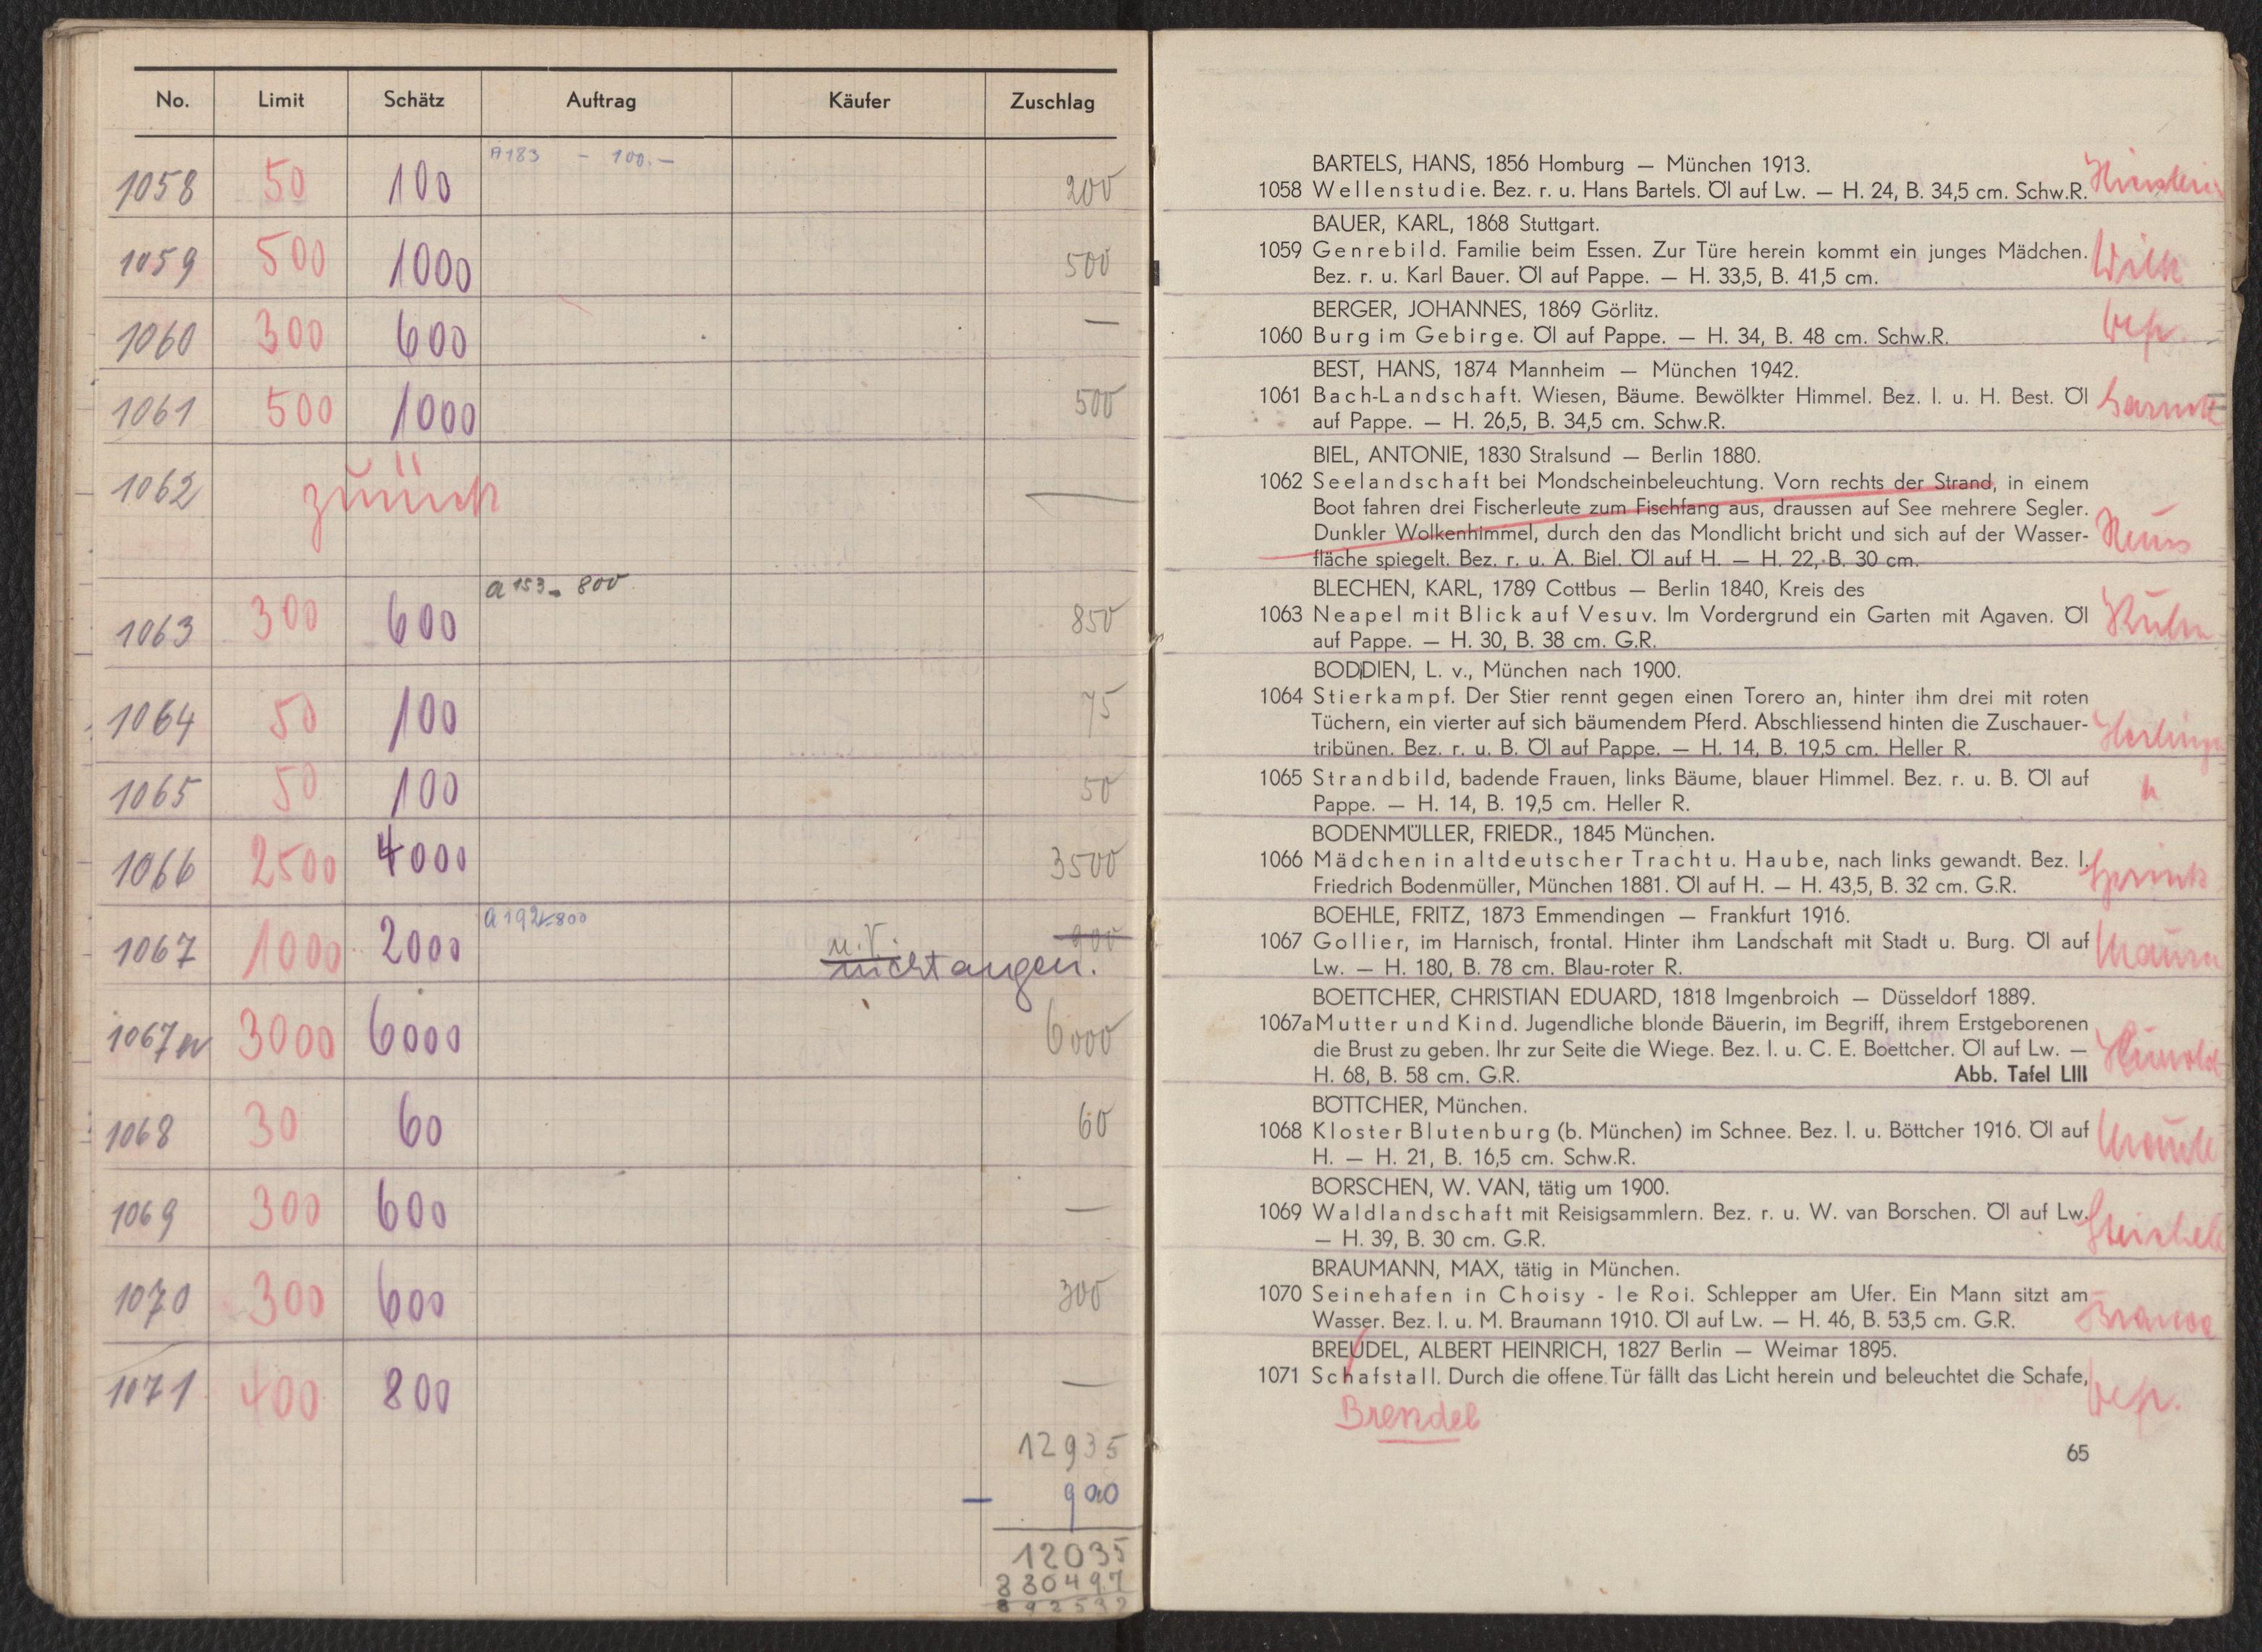 No. Limit Schätz Auftrag Käufer Zuschlag
1058 50 100 A183 - 100.- 200
1059 500 1000 500
1060 300 600 —
1061 500 1000 500
1062 zurück —
1063 300 600 a 153 - 800 850
1064 50 100 75
1065 50 100 50
1066 2500 4000 3500
1067 1000 2000 a 192-800 u.V. 900
nicht angen.
1067a 3000 6000 6000
1068 30 60 60
1069 300 600 —
1070 300 600 300
1071 400 800 —
12935
— 900
12035
BARTELS, HANS, 1856 Homburg — München 1913.
1058 Wellenstudie. Bez. r. u. Hans Bartels. Öl auf Lw. — H. 24, B. 34,5 cm. Schw.R.
BAUER, KARL, 1868 Stuttgart.
1059 Genrebild. Familie beim Essen. Zur Türe herein kommt ein junges Mädchen.
Bez. r. u. Karl Bauer. Öl auf Pappe. — H. 33,5, B. 41,5 cm.
BERGER, JOHANNES, 1869 Görlitz.
1060 Burg im Gebirge. Öl auf Pappe. — H. 34, B. 48 cm. Schw.R.
BEST, HANS, 1874 Mannheim — München 1942.
1061 Bach-Landschaft. Wiesen, Bäume. Bewölkter Himmel. Bez. l. u. H. Best. Öl
auf Pappe. — H. 26,5, B. 34,5 cm. Schw.R.
BIEL, ANTONIE, 1830 Stralsund — Berlin 1880.
1062 Seelandschaft bei Mondscheinbeleuchtung. Vorn rechts der Strand, in einem
Boot fahren drei Fischerleute zum Fischfang aus, draussen auf See mehrere Segler.
Dunkler Wolkenhimmel, durch den das Mondlicht bricht und sich auf der Wasser-
fläche spiegelt. Bez. r. u. A. Biel. Öl auf H. — H. 22, B. 30 cm.
BLECHEN, KARL, 1789 Cottbus — Berlin 1840, Kreis des
1063 Neapel mit Blick auf Vesuv. Im Vordergrund ein Garten mit Agaven. Öl
auf Pappe. — H. 30, B. 38 cm. G.R.
BODDIEN, L. v., München nach 1900.
1064 Stierkampf. Der Stier rennt gegen einen Torero an, hinter ihm drei mit roten
Tüchern, ein vierter auf sich bäumendem Pferd. Abschliessend hinten die Zuschauer-
tribünen. Bez. r. u. B. Öl auf Pappe. — H. 14, B. 19,5 cm. Heller R.
1065 Strandbild, badende Frauen, links Bäume, blauer Himmel. Bez. r. u. B. Öl auf
Pappe. — H. 14, B. 19,5 cm. Heller R.
BODENMÜLLER, FRIEDR., 1845 München.
1066 Mädchen in altdeutscher Tracht u. Haube, nach links gewandt. Bez. l.
Friedrich Bodenmüller, München 1881. Öl auf H. — H. 43,5, B. 32 cm. G.R.
BOEHLE, FRITZ, 1873 Emmendingen — Frankfurt 1916.
1067 Gollier, im Harnisch, frontal. Hinter ihm Landschaft mit Stadt u. Burg. Öl auf
Lw. — H. 180, B. 78 cm. Blau-roter R.
BOETTCHER, CHRISTIAN EDUARD, 1818 Imgenbroich — Düsseldorf 1889.
1067a Mutter und Kind. Jugendliche blonde Bäuerin, im Begriff, ihrem Erstgeborenen
die Brust zu geben. Ihr zur Seite die Wiege. Bez. l. u. C. E. Boettcher. Öl auf Lw. —
H. 68, B. 58 cm. G.R. Abb. Tafel LIII
BÖTTCHER, München.
1068 Kloster Blutenburg (b. München) im Schnee. Bez. l. u. Böttcher 1916. Öl auf
H. — H. 21, B. 16,5 cm. Schw.R.
BORSCHEN, W. VAN, tätig um 1900.
1069 Waldlandschaft mit Reisigsammlern. Bez. r. u. W. van Borschen. Öl auf Lw.
— H. 39, B. 30 cm. G.R.
BRAUMANN, MAX, tätig in München.
1070 Seinehafen in Choisy - le Roi. Schlepper am Ufer. Ein Mann sitzt am
Wasser. Bez. l. u. M. Braumann 1910. Öl auf Lw. — H. 46, B. 53,5 cm. G.R.
BREUDEL, ALBERT HEINRICH, 1827 Berlin — Weimar 1895.
1071 Schafstall. Durch die offene Tür fällt das Licht herein und beleuchtet die Schafe,
Brendel
65